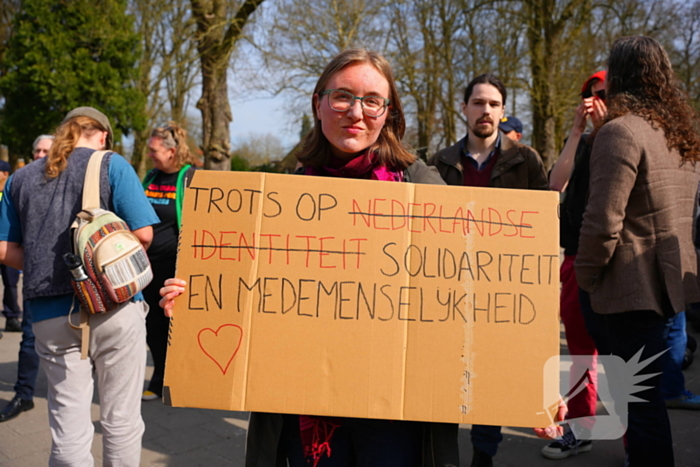 TROTS OP NEDERLANDSE
IDENTITEIT SOLIDARITEIT
EN MEDEMENSELIJKHEID